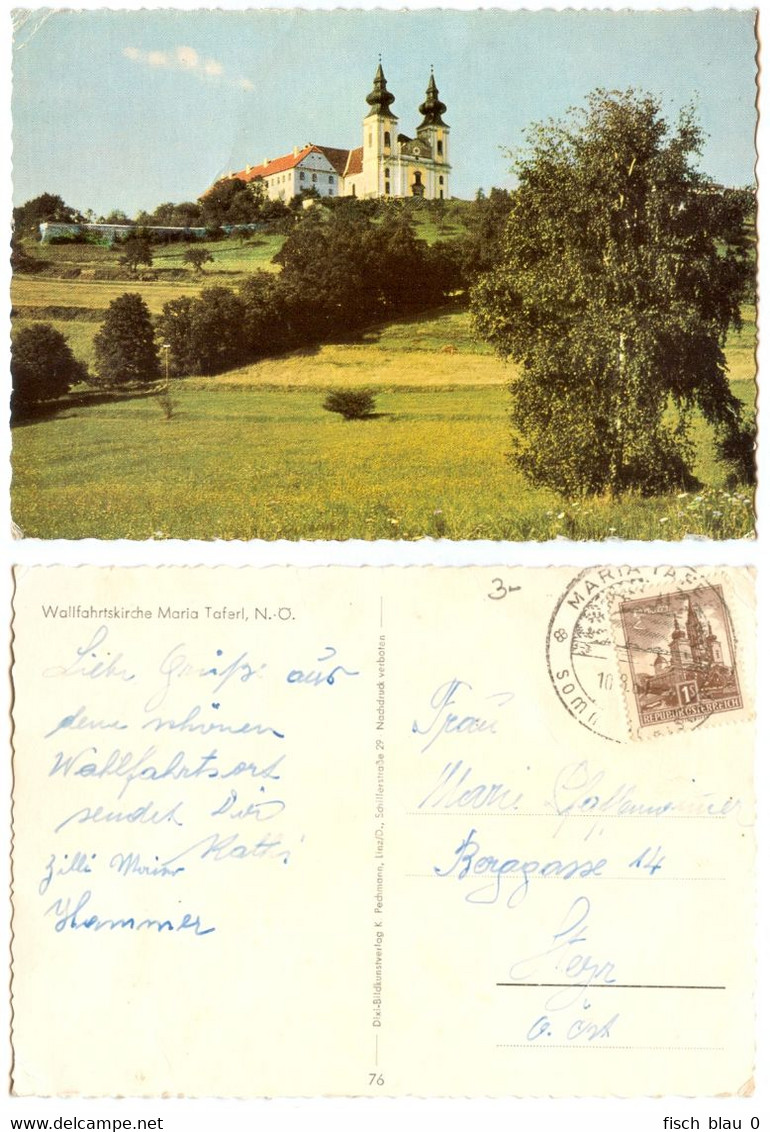 Wallfahrtskirche Maria Taferl, N.-Ö.
Liebe Grüße aus
dem schönen
Wahlfahrtsort
sendet Dir
Kathi
Zilli
Hammer
Dixi-Bildkunstverlag K. Pechmann, Linz/D., Schillerstraße 29 Nachdruck verboten
76
3-
MARIA TA
SOMM
10.8.
1S
REPUBLIK ÖSTERREICH
Frau
Marie
Berggasse 14
Steyr
O. Öst
fisch_blau_0